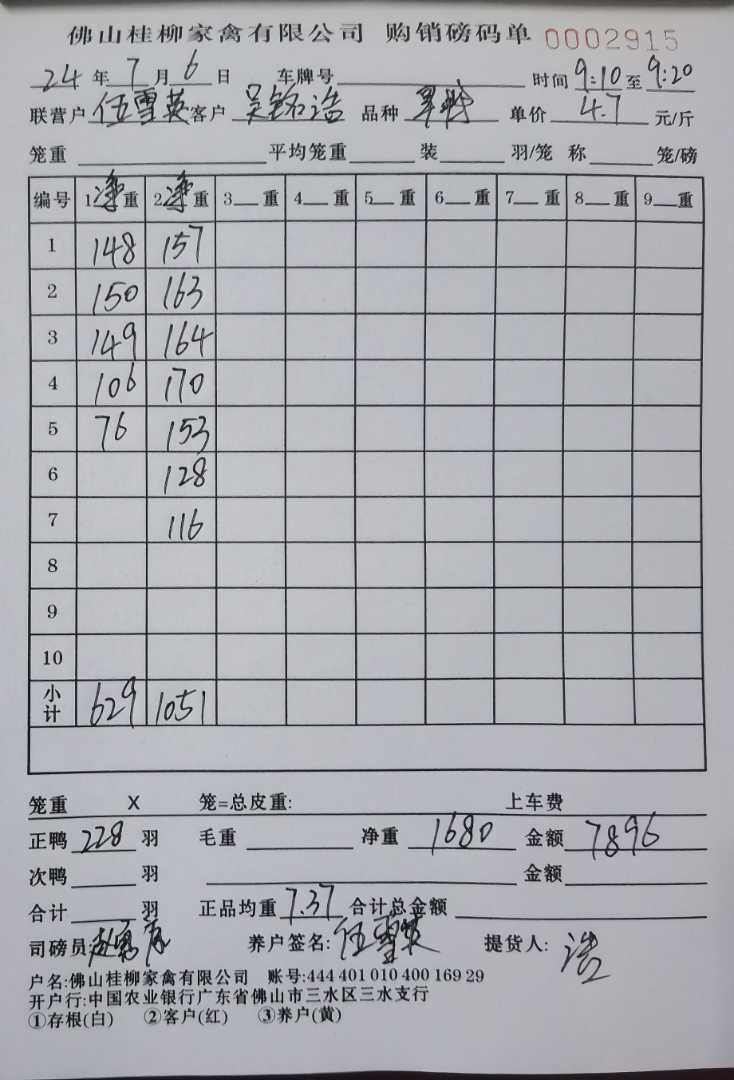 佛山桂柳家禽有限公司 购销磅码单 0002915
24 年 7 月 6 日 车牌号 时间 9:10 至 9:20
联营户 伍雪英 客户 吴铭浩 品种 单价 4.7 元/斤
笼重 平均笼重 装 羽/笼 称 笼/磅
编号 1净重 2净重 3 重 4 重 5 重 6 重 7 重 8 重 9 重
1 148 157
2 150 163
3 149 164
4 106 170
5 76 153
6 128
7 116
8
9
10
小计 629 1051
笼重 X 笼=总皮重: 上车费
正鸭 228 羽 毛重 净重 1680 金额 7896
次鸭 羽 金额
合计 羽 正品均重 7.37 合计总金额
司磅员: 养户签名: 伍雪英 提货人: 浩
户名:佛山桂柳家禽有限公司 账号:444 401 010 400 169 29
开户行:中国农业银行广东省佛山市三水区三水支行
①存根(白) ②客户(红) ③养户(黄)